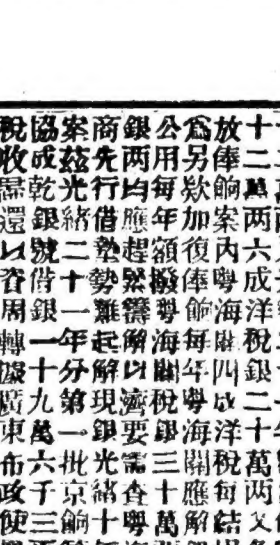 十二萬两六成洋稅銀二十萬两又
放俸餉案内粤海關四成洋稅每結
爲另欵加復俸餉每年粤海關應解
公用每年額撥粤海關稅銀三十萬
銀两均應趕緊籌解以濟要需查粤
商先行借墊勢難起解現銀光緒十
案茲光緒二十一年分第一批京餉
協成乾銀號借銀一十九萬六千三
稅收歸還以資周轉據廣東布政使